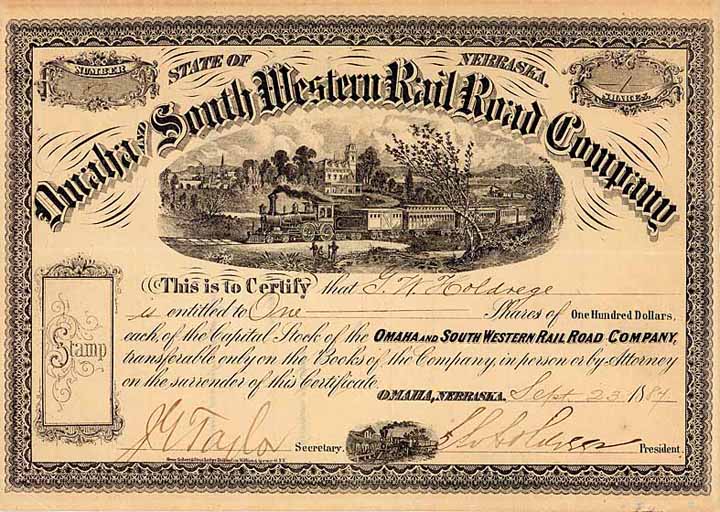 NUMBER
STATE OF NEBRASKA.
SHARES.
Omaha and South Western Rail Road Company
This is to Certify that G. W. Holdrege
is entitled to One Shares of One Hundred Dollars,
each, of the Capital Stock of the OMAHA AND SOUTH WESTERN RAIL ROAD COMPANY,
transferable only on the Books of the Company, in person or by Attorney
on the surrender of this Certificate.
Stamp
OMAHA, NEBRASKA. Sept 23 1887
J G Taylor Secretary. President.